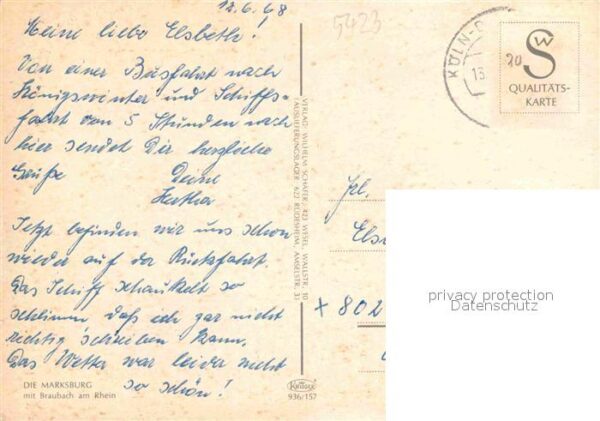 12.6.68
5423
Meine liebe Elsbeth!
Von einer Busfahrt nach
Königswinter und Schiffs-
fahrt von 5 Stunden nach
hier sendet Dir herzliche
Grüße Deine
Hertha
Jetzt befinden wir uns schon
wieder auf der Rückfahrt
Das Schiff schaukelt so
schlimm daß ich gar nicht
richtig schreiben kann.
Das Wetter war leider nicht
so schön!
DIE MARKSBURG
mit Braubach am Rhein
Krüger
936/157
VERLAG: WILHELM SCHÄFER · 423 WESEL, WALLSTR. 10
(AUSLIEFERUNGSLAGER: 622 RÜDESHEIM, AMSELSTR. 31
KÖLN-D
13
20
SW
QUALITÄTS-
KARTE
Frl.
Els
x 802
privacy protection
Datenschutz